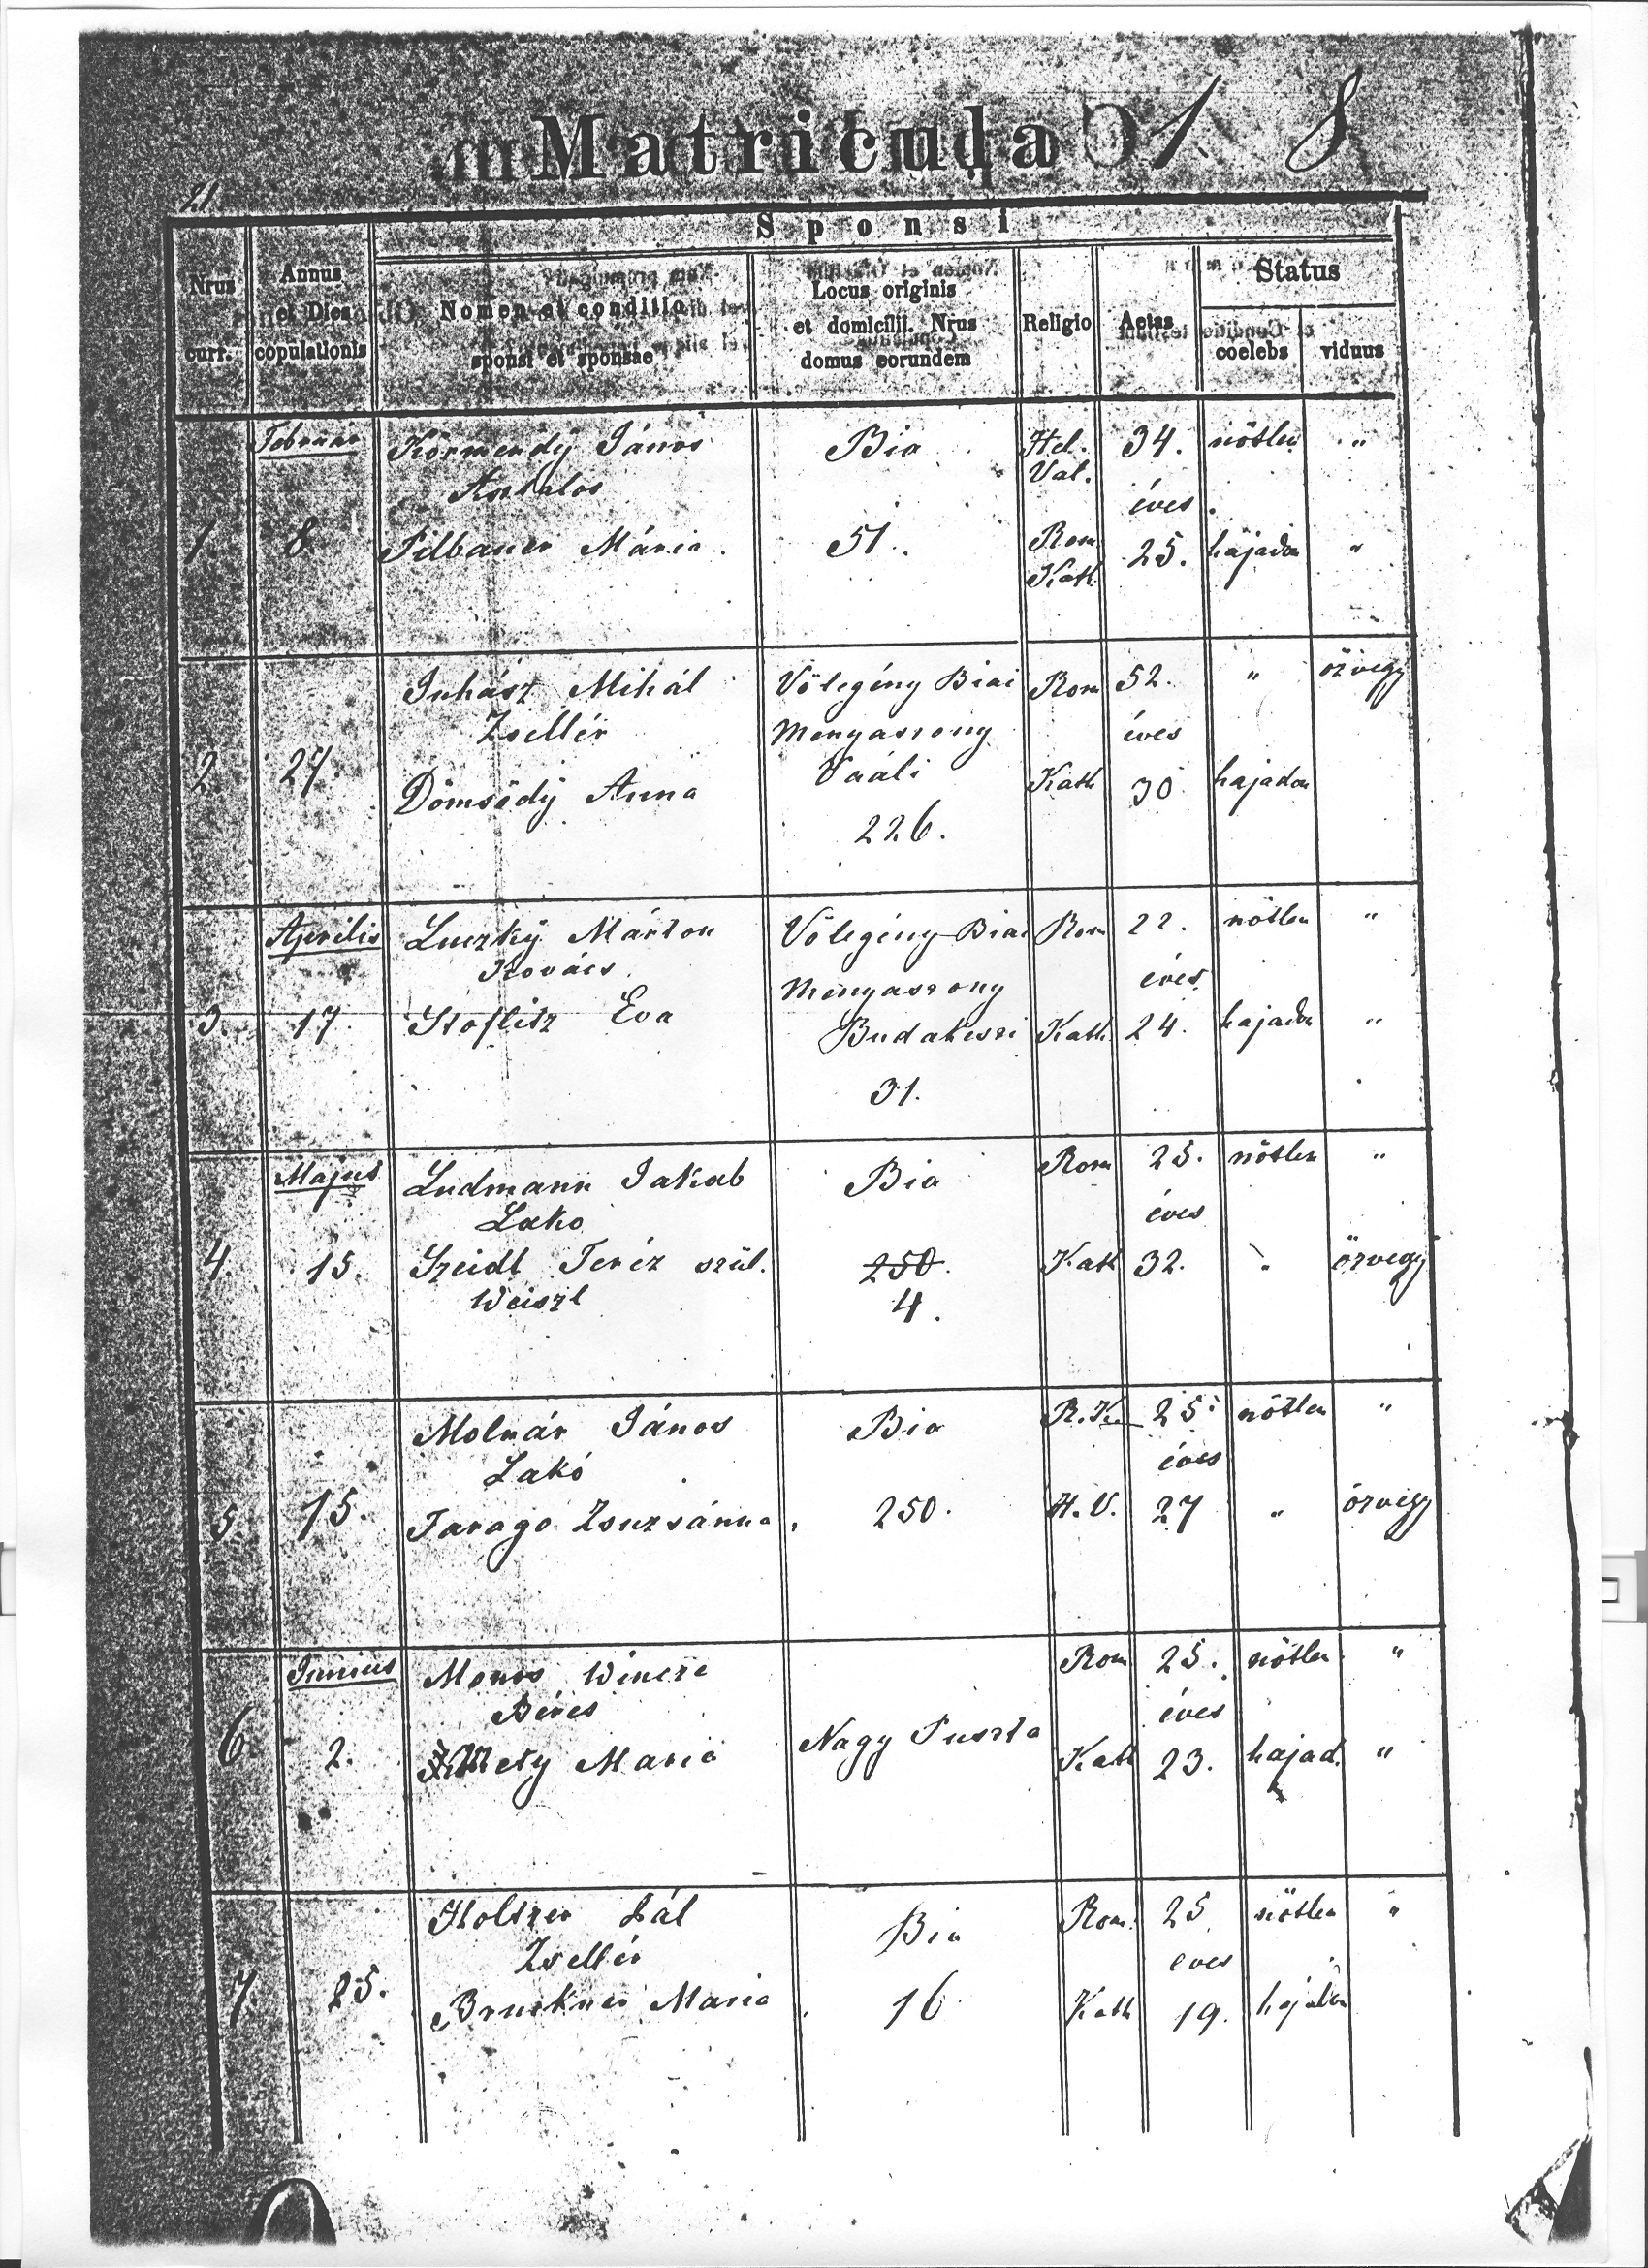 Matricula
21
Sponsi
Nrus
curr.
Annus
et Dies
copulationis
Nomen et conditio
sponsi et sponsae
Locus originis
et domicilii. Nrus
domus eorundem
Religio
Aetas
Status
coelebs
viduus
Februar Körmendÿ János Bia Hel. 34. nőtlen "
Val.
éves
1. 8. Filbauer Mária. 51. Rom 25. hajadon "
Kath
Juhász Mihál Völegény Biai Rom 52. " özvegy
Zsellér Menyasszony éves
2. 27. Vaáli
Dömsödÿ Anna Kath 30 hajadon
226.
Aprilis Luczkÿ Márton Völegény Biai Rom 22. nőtlen "
Kovács Menyasszony éves
3. 17. Stoflitz Éva Budakeszi Kath. 24. hajadon "
31.
Majus Ludmann Jakab Bia Rom 25. nőtlen "
Lako éves
4. 15. Szeidl Teréz szül. 250. Kath 32. " özvegy
Weiszl 4.
Molnár János Bia R.K. 25. nőtlen "
Lakó éves
5. 15. Tarago Zsuzsánna 250. H.V. 27 " özvegy
Junius Monos Wincze Rom 25. nőtlen "
Béres éves
6. 2. Maria Nagy Puszta Kath 23. hajad. "
Holtzer Pál Bia Rom. 25 nőtlen "
Zsellér eves
7. 25. Bruckner Maria 16 Kath 19. hajadon